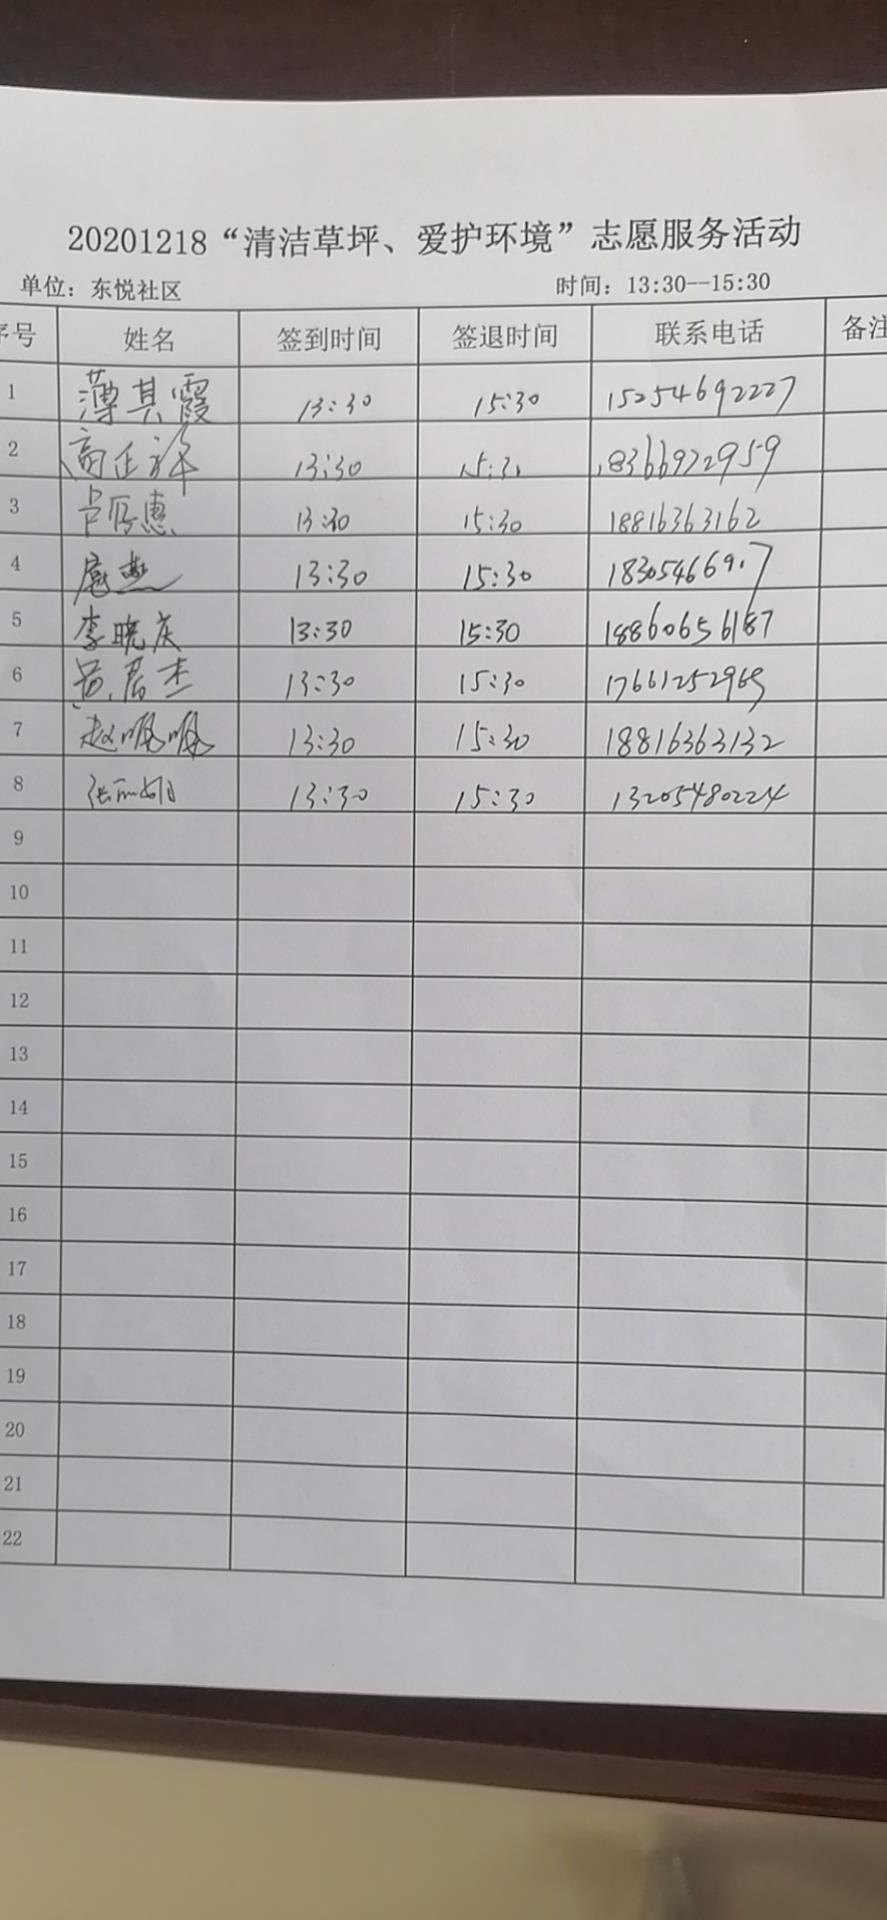 20201218“清洁草坪、爱护环境”志愿服务活动
单位：东悦社区 时间：13:30--15:30
序号 姓名 签到时间 签退时间 联系电话 备注
1 薄其霞 13:30 15:30 15254692227
2 高正 13:30 15:3 18366922959
3 卢厚惠 13:30 15:30 18816363162
4 燕 13:30 15:30
5 李晓庆 13:30 15:30 18860656187
6 黄君杰 13:30 15:30 17661252969
7 赵 13:30 15:30 18816363132
8 张 13:30 15:30 13205480224
9
10
11
12
13
14
15
16
17
18
19
20
21
22